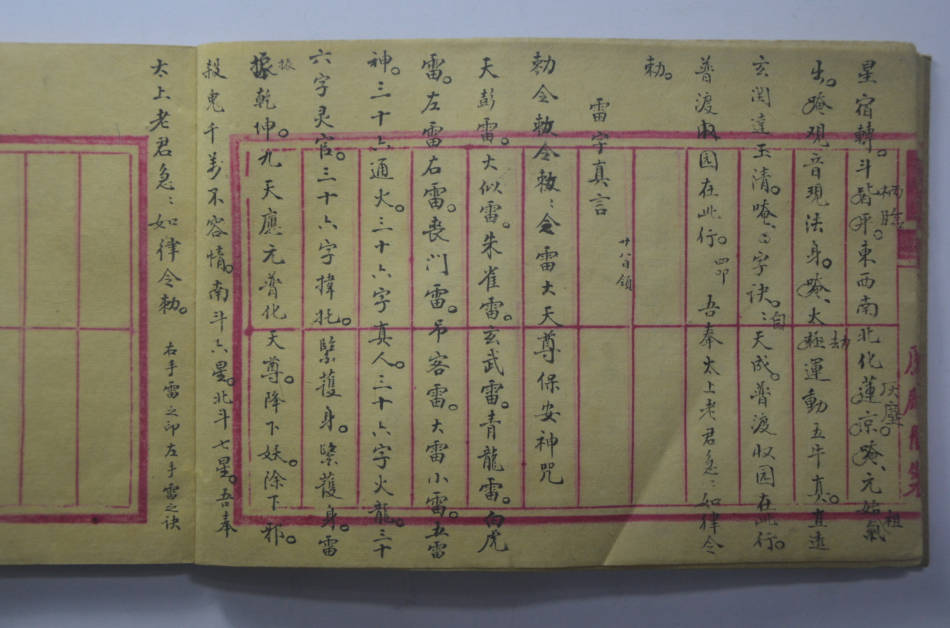 星宿轉。斗牛。東西南北化蓮。唵、元始氣
病除
灰塵
祖
生。唵、現音現法身。唵、火運動五牛真。直透
劫
玄関達玉清。唵、字訣：天成。普渡收园在此行。
自
普渡收园在此行。吾奉太上老君急：如律令
四印
勅。
廿八日領
雷字真言
勅令勅令敕：令雷大天尊保安神咒
天彭雷。大似雷。朱雀雷。玄武雷。青龍雷。白虎
雷。左雷右雷。喪门雷。吊客雷。大雷小雷。五雷
神。三十六通火。三十六字真人。三十六字火龍。三十
六字灵官。三十六字揮扥。緊護身。緊護身。雷
振乾伸。九天應元普化天尊。降下妖除下邪。
振
殺鬼千万不容情。南斗六星。北斗七星。吾奉
太上老君急：如律令勅。
右手雷之印左手雷之诀